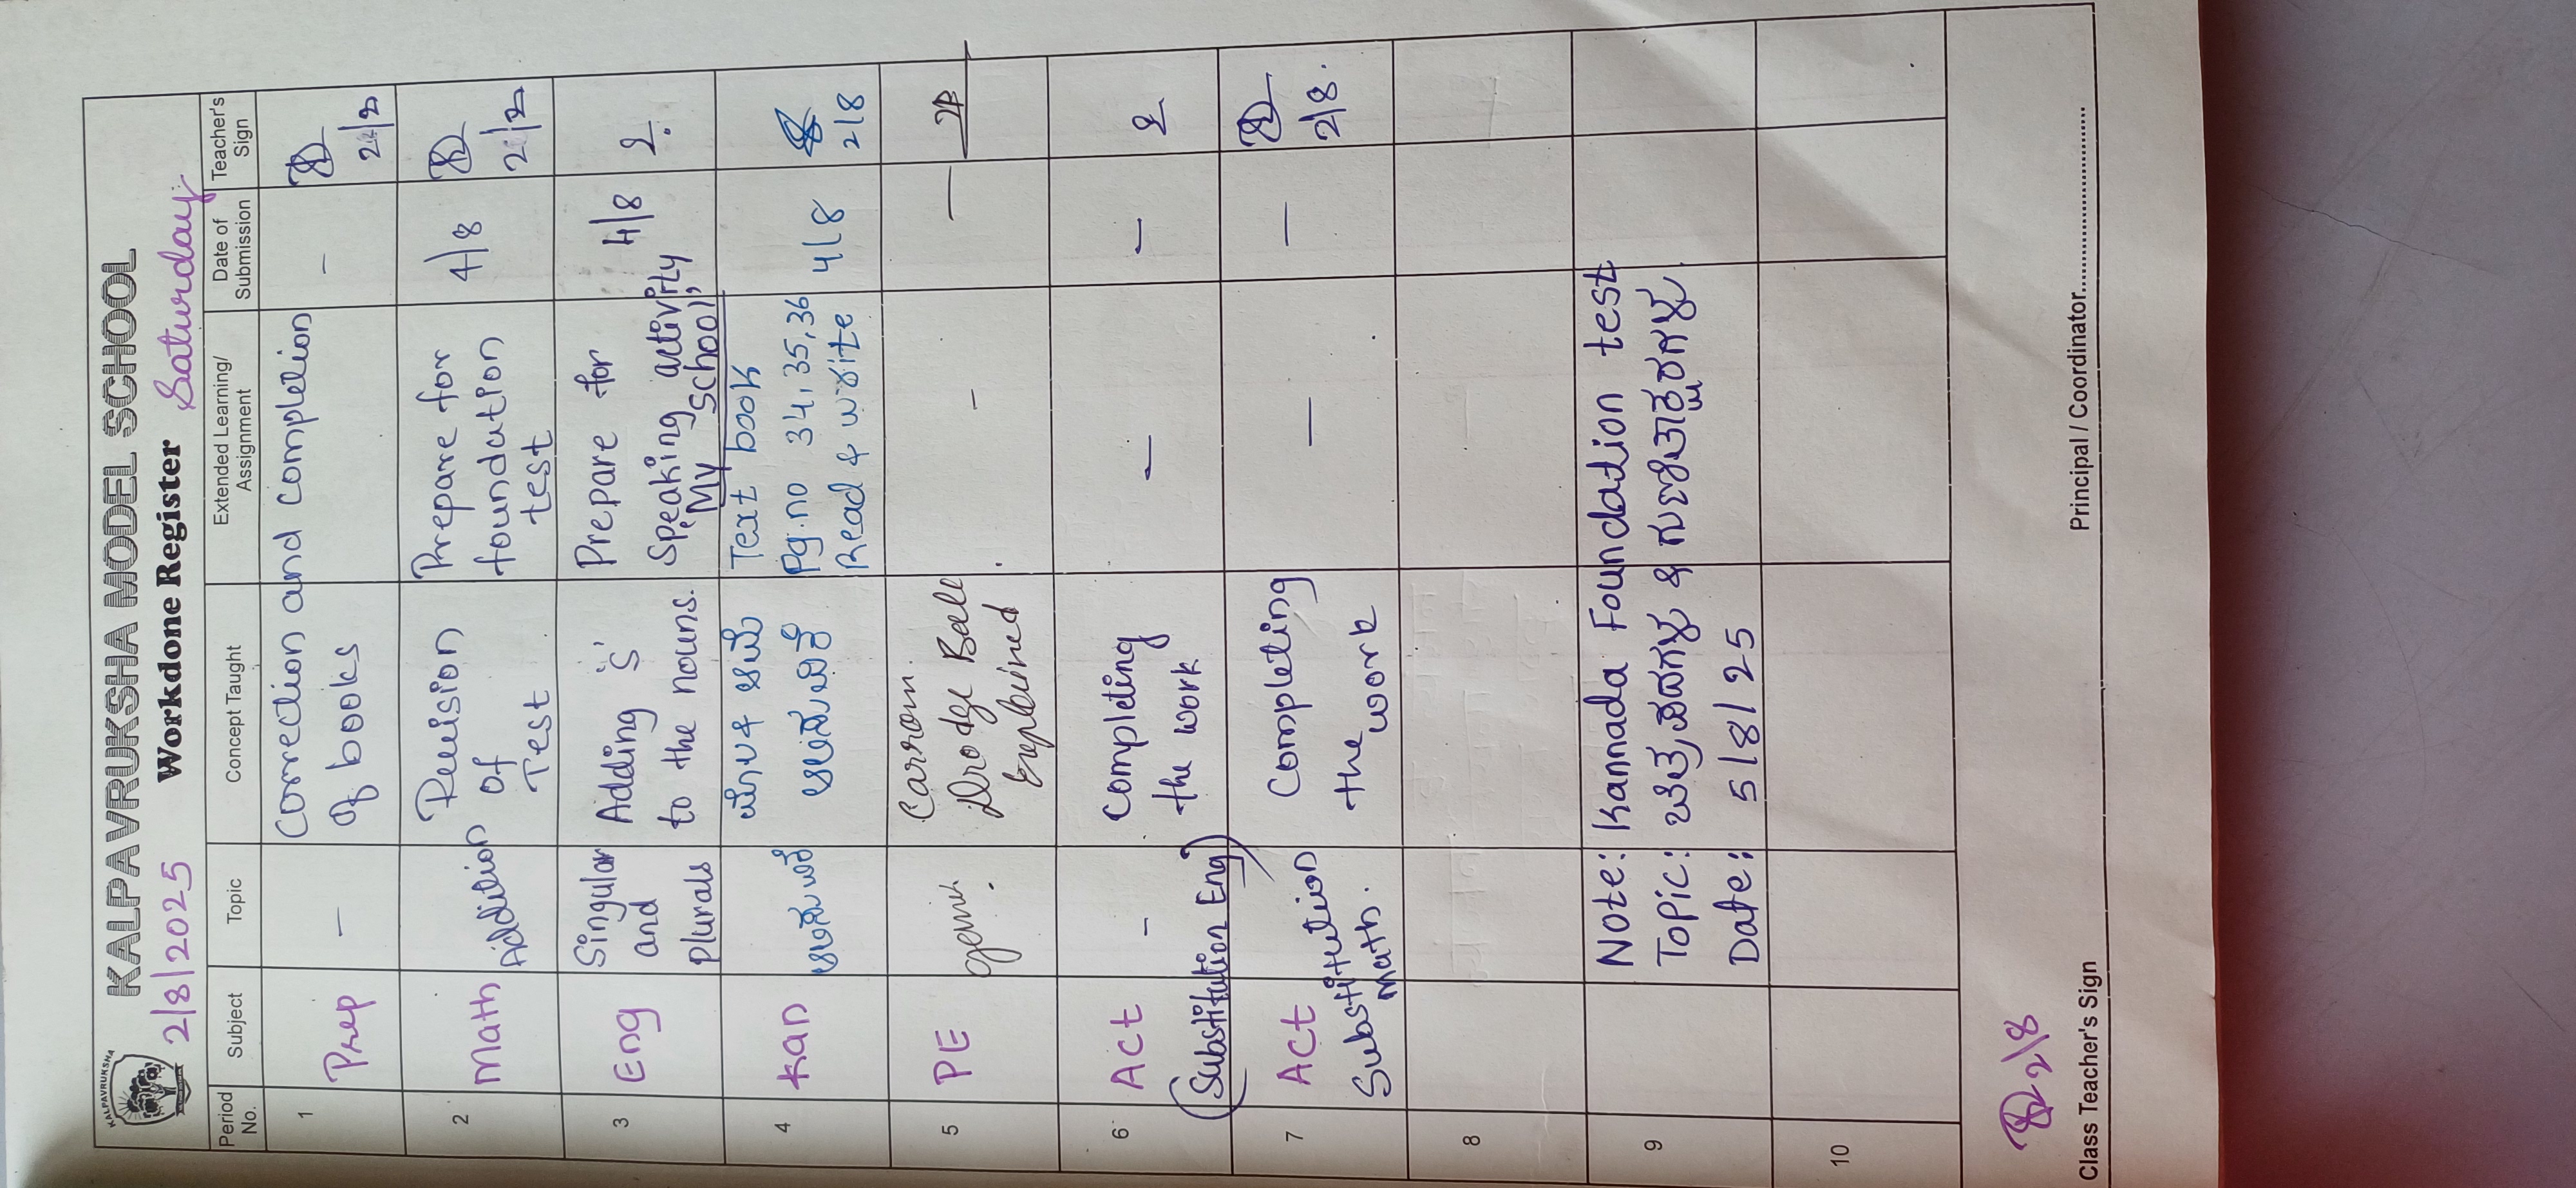 KALPAVRUKSHA
KALPAVRUKSHA MODEL SCHOOL
2/8/2025 Workdone Register Saturday
Period No. Subject Topic Concept Taught Extended Learning/ Assignment Date of Submission Teacher's Sign
1 Prep - Correction and completion -
of books 2/2
2 Math Addition Revision Prepare for 4/8
of foundation 2/2
Test test
3 Eng Singular Adding 's' Prepare for 4/8
and to the nouns. Speaking activity
plurals 'My school'
4 Kan Text book
Pg.no 34,35,36 4/8
Read & write 2/8
5 PE Carrom. - —
Drodge Ball
Explained
6 Act - Completing — —
the work
(Substitution Eng)
7 Act Completing — —
Substitution the work 2/8.
Math.
8
9 Note: Kannada Foundation test
Topic: ಚಿತ್ರಪದಗಳು & ಗುಣಿತಾಕ್ಷರಗಳು.
Date: 5/8/25
10
2/8
Class Teacher's Sign Principal / Coordinator